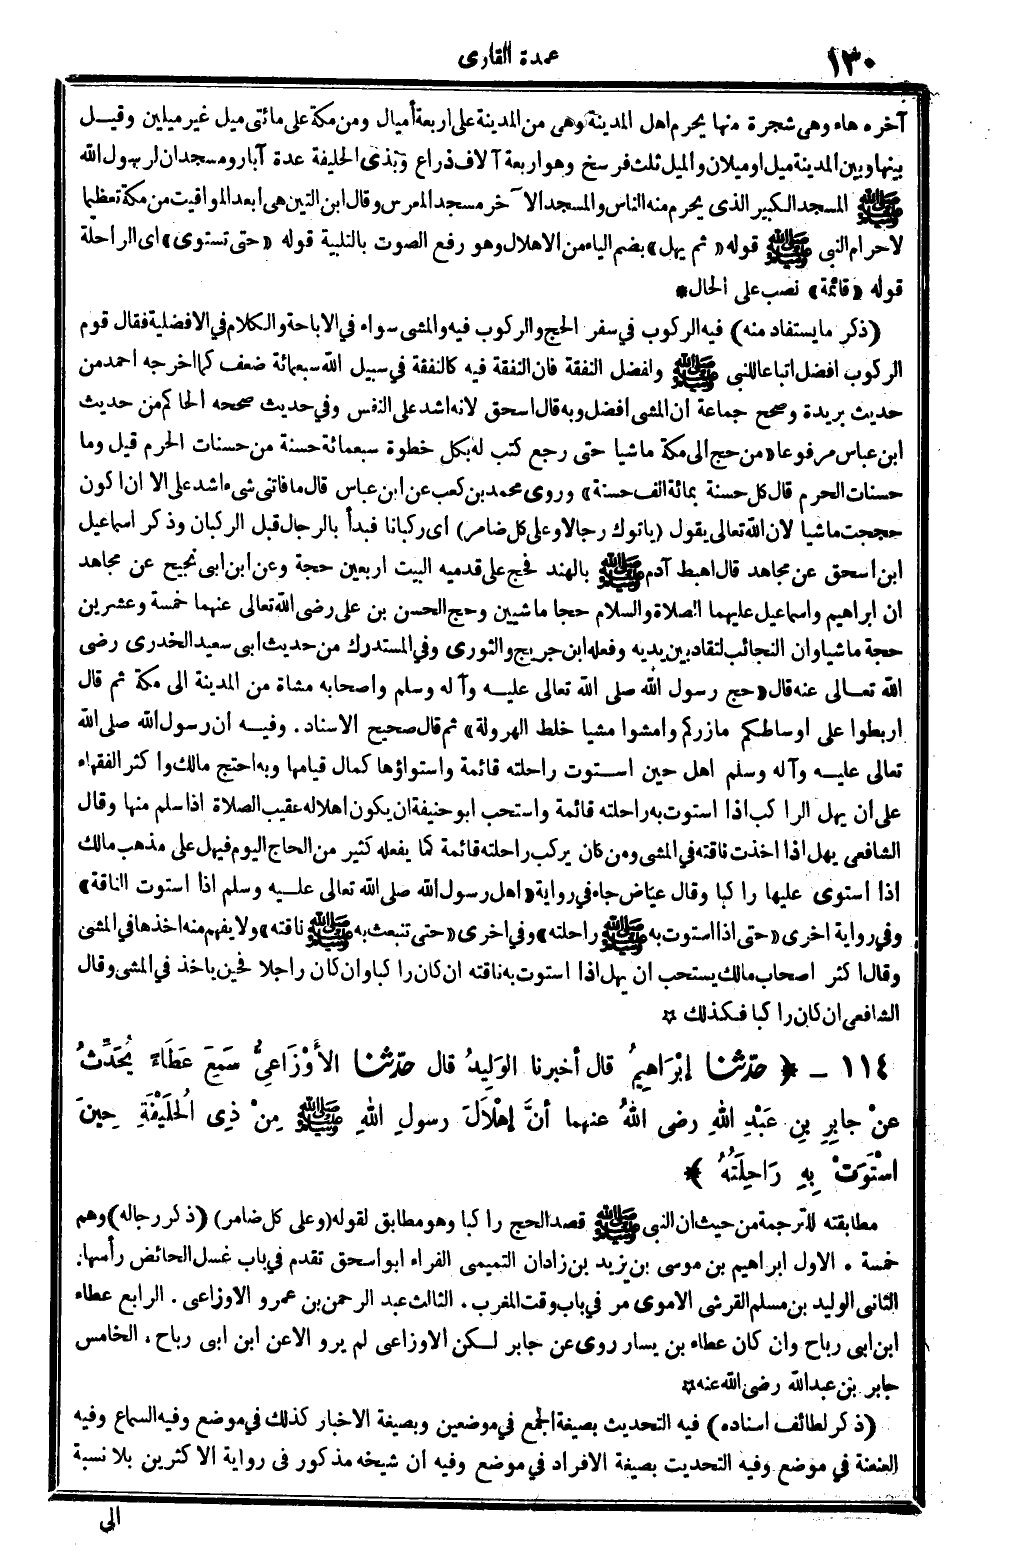 ١٣٠
عمدة القارى
آخره هاء وهى شجرة منها يحرم اهل المدينة وهى من المدينة على اربعة أميال ومن مكة على مائتى ميل غير ميلين وقيل
بينها وبين المدينة ميل او ميلان والميل ثلث فرسخ وهو اربعة آلاف ذراع وبذى الحليفة عدة آبار ومسجدان لرسول الله
ﷺ المسجد الكبير الذى يحرم منه الناس والمسجد الآخر مسجد المعرس وقال ابن التين هى ابعد المواقيت من مكة تعظيما
لاحرام النبى ﷺ قوله «ثم يهل» بضم الياء من الاهلال وهو رفع الصوت بالتلبية قوله «حتى تستوى» اى الراحلة
قوله «قائمة» نصب على الحال*
(ذكر ما يستفاد منه) فيه الركوب في سفر الحج والركوب فيه والمشى سواء في الاباحة والكلام في الافضلية فقال قوم
الركوب افضل اتباعا للنبى ﷺ وافضل النفقة فان النفقة فيه كالنفقة في سبيل الله سبعمائة ضعف كما اخرجه احمد من
حديث بريدة وصحح جماعة ان المشى افضل وبه قال اسحق لانه اشد على النفس وفي حديث صححه الحاكم من حديث
ابن عباس مرفوعا «من حج الى مكة ماشيا حتى رجع كتب له بكل خطوة سبعمائة حسنة من حسنات الحرم قيل وما
حسنات الحرم قال كل حسنة بمائة الف حسنة» وروى محمد بن كعب عن ابن عباس قال ما فاتنى شىء اشد على الا ان اكون
حججت ماشيا لان الله تعالى يقول (يأتوك رجالا وعلى كل ضامر) اى ركبانا فبدأ بالرجال قبل الركبان وذكر اسماعيل
ابن اسحق عن مجاهد قال اهبط آدم ﷺ بالهند فحج على قدميه البيت اربعين حجة وعن ابن ابى نجيح عن مجاهد
ان ابراهيم واسماعيل عليهما الصلاة والسلام حجا ماشيين وحج الحسن بن على رضى الله تعالى عنهما خمسة وعشرين
حجة ماشيا وان النجائب لتقاد بين يديه وفعله ابن جريج والثورى وفي المستدرك من حديث ابى سعيد الخدرى رضى
الله تعالى عنه قال «حج رسول الله صلى الله تعالى عليه وآله وسلم واصحابه مشاة من المدينة الى مكة ثم قال
اربطوا على اوساطكم مآزركم وامشوا مشيا خلط الهرولة» ثم قال صحيح الاسناد. وفيه ان رسول الله صلى الله
تعالى عليه وآله وسلم اهل حين استوت راحلته قائمة واستواؤها كمال قيامها وبه احتج مالك واكثر الفقهاء
على ان يهل الراكب اذا استوت به راحلته قائمة واستحب ابو حنيفة ان يكون اهلاله عقيب الصلاة اذا سلم منها وقال
الشافعى يهل اذا اخذت ناقته في المشى ومن كان يركب راحلته قائمة كما يفعله كثير من الحاج اليوم فيهل على مذهب مالك
اذا استوى عليها راكبا وقال عياض جاء في رواية «اهل رسول الله صلى الله تعالى عليه وسلم اذا استوت الناقة»
وفي رواية اخرى «حتى اذا استوت به ﷺ راحلته» وفي اخرى «حتى تنبعث به ﷺ ناقته» ولا يفهم منه اخذها في المشى
وقال اكثر اصحاب مالك يستحب ان يهل اذا استوت به ناقته ان كان راكبا وان كان راجلا فحين يأخذ في المشى وقال
الشافعى ان كان راكبا فكذلك ☆
١١٤ ـ ﴿ حدّثنا إبْرَاهِيمُ قال أخبرنا الوَلِيدُ قال حدّثنا الأَوْزَاعِىُّ سَمِعَ عَطَاءً يُحَدِّثُ
عنْ جابِرِ بنِ عَبْدِ اللهِ رضى اللهُ عنهما أنَّ إهْلَالَ رسولِ اللهِ ﷺ مِنْ ذِى الْحُلَيْفَةِ حِينَ
اسْتَوَتْ بِهِ رَاحِلَتُهُ ﴾
مطابقته للترجمة من حيث ان النبى ﷺ قصد الحج راكبا وهو مطابق لقوله (وعلى كل ضامر) (ذكر رجاله) وهم
خمسة . الاول ابراهيم بن موسى بن يزيد بن زادان التميمى الفراء ابو اسحق تقدم في باب غسل الحائض رأسها.
الثانى الوليد بن مسلم القرشى الاموى مر في باب وقت المغرب . الثالث عبد الرحمن بن عمرو الاوزاعى . الرابع عطاء
ابن ابى رباح وان كان عطاء بن يسار روى عن جابر لكن الاوزاعى لم يرو الا عن ابن ابى رباح . الخامس
جابر بن عبدالله رضى الله عنه ☆
(ذكر لطائف اسناده) فيه التحديث بصيغة الجمع في موضعين وبصيغة الاخبار كذلك في موضع وفيه السماع وفيه
العنعنة في موضع وفيه التحديث بصيغة الافراد في موضع وفيه ان شيخه مذكور فى رواية الاكثرين بلا نسبة
الى